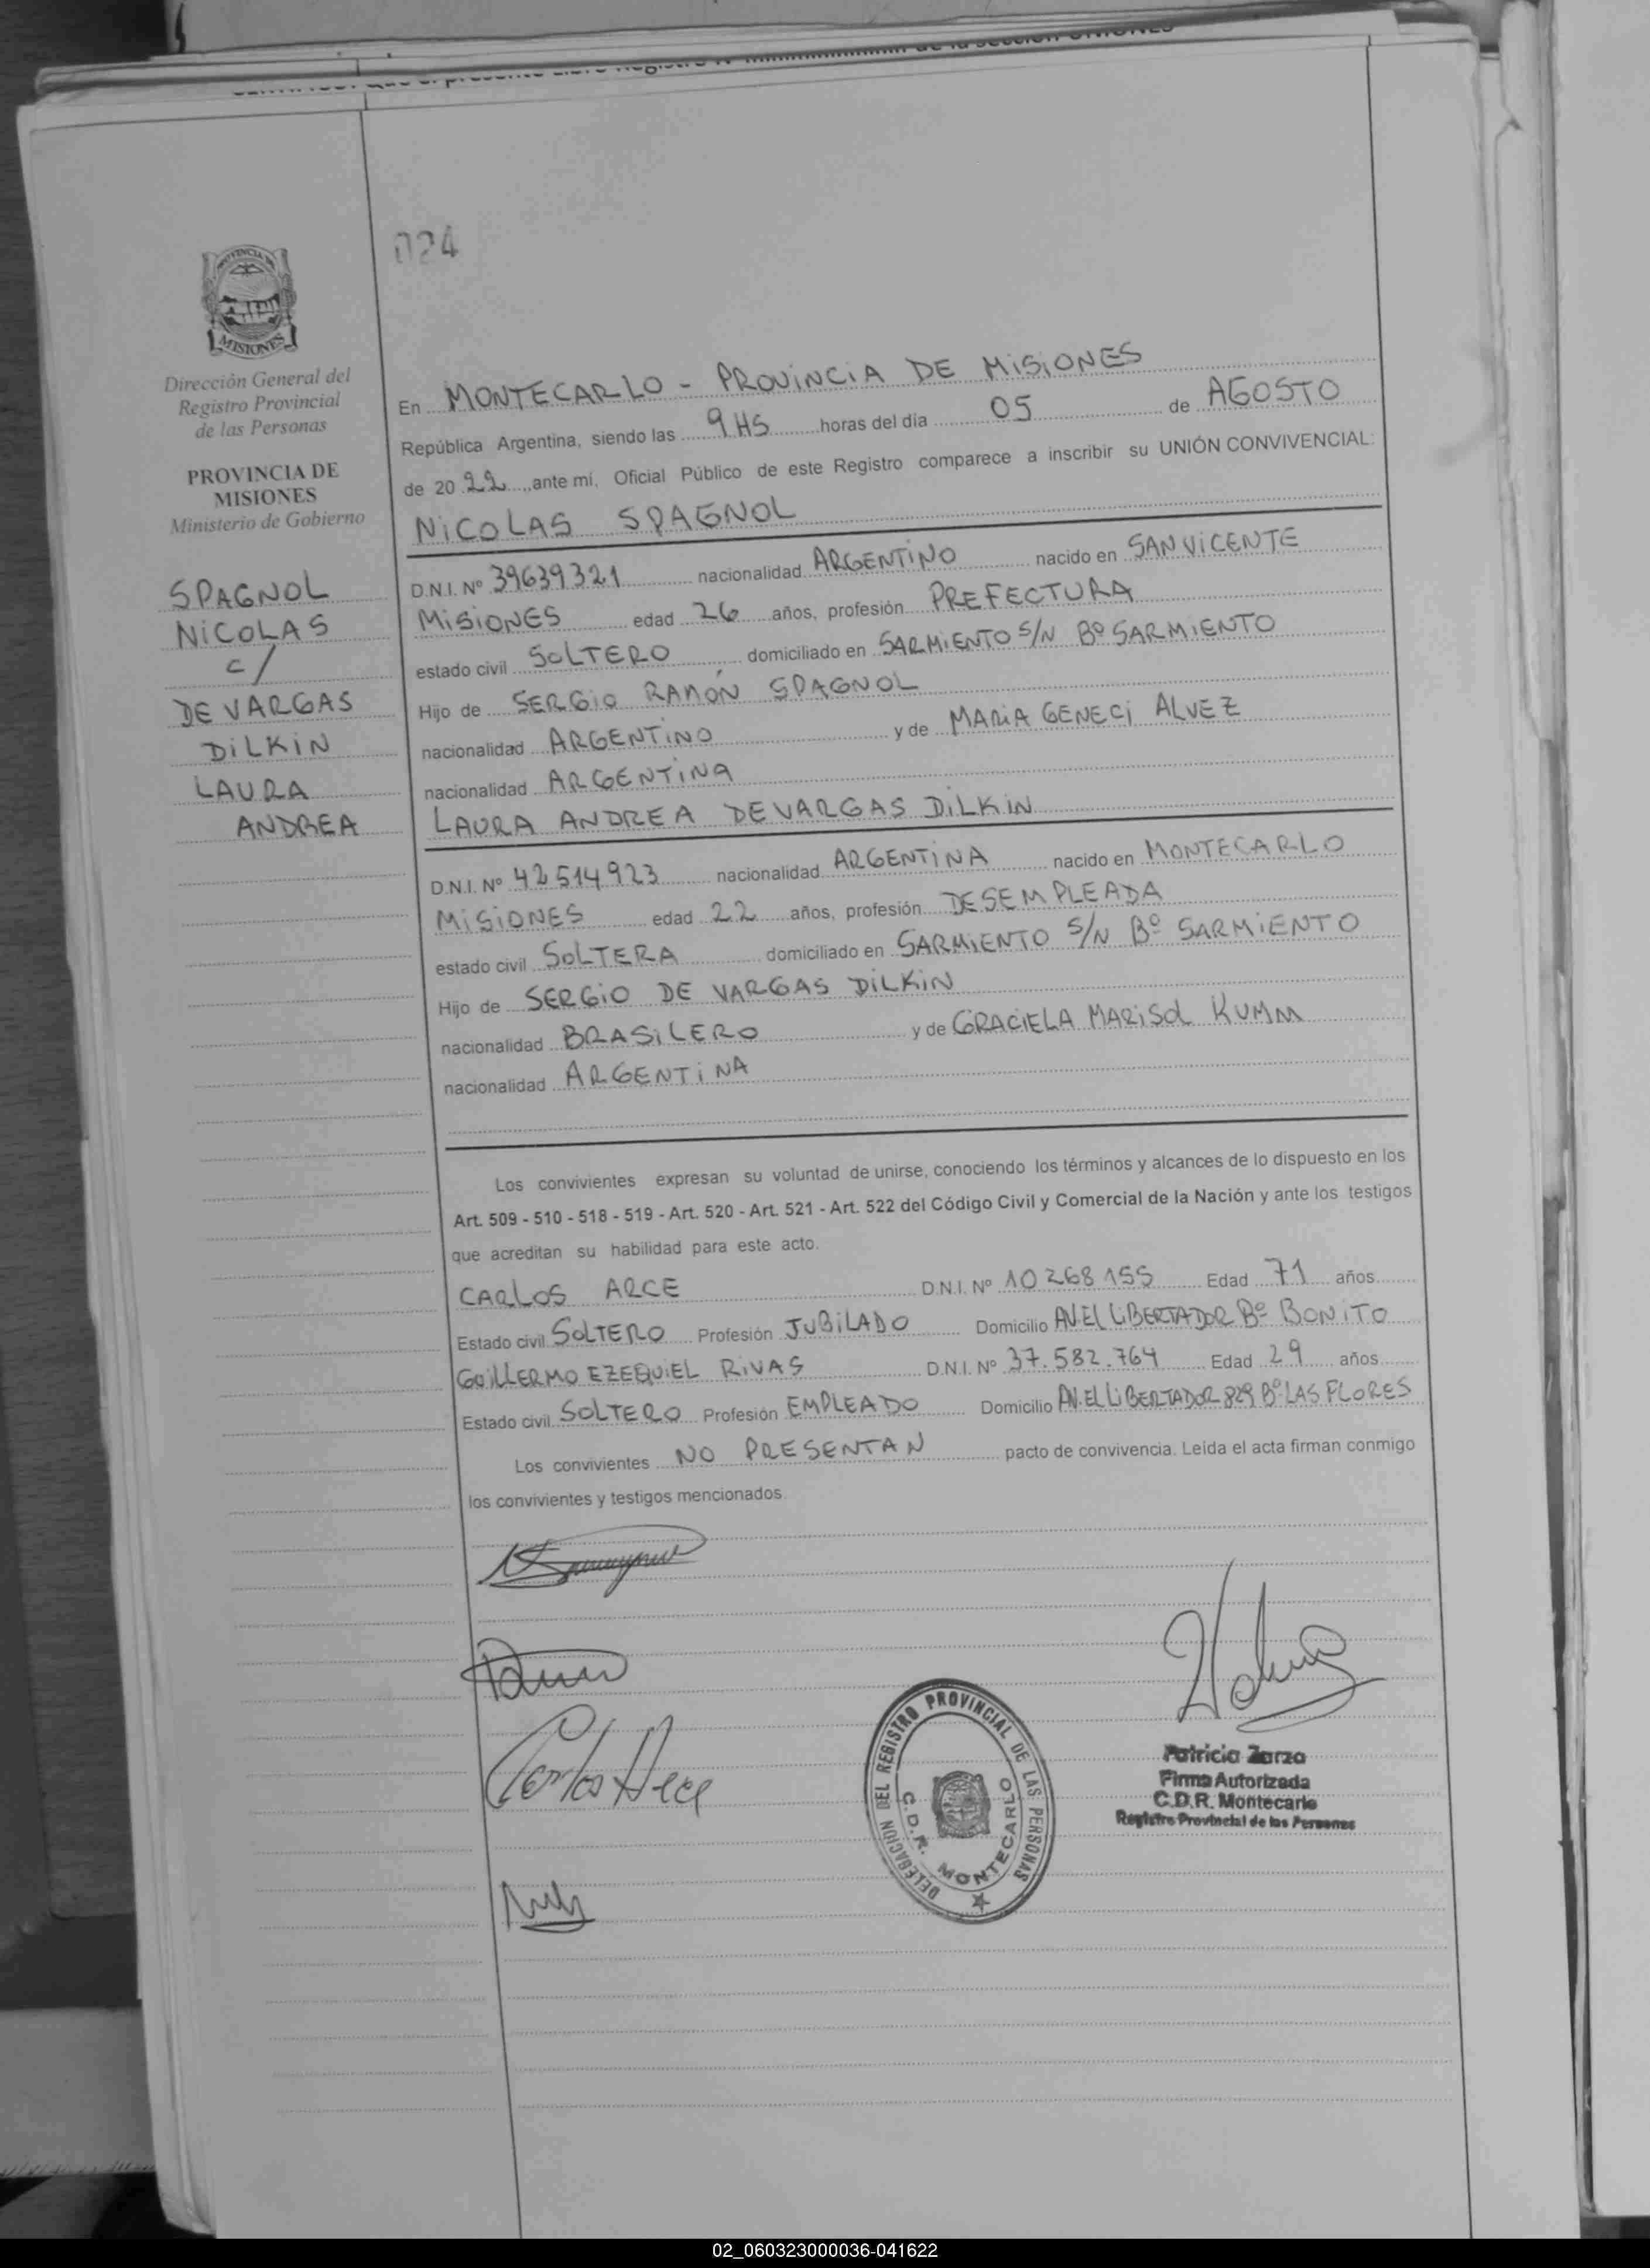 024
PROVINCIA DE
MISIONES
Dirección General del
Registro Provincial
de las Personas
PROVINCIA DE
MISIONES
Ministerio de Gobierno
SPAGNOL
NICOLAS
c/
DE VARGAS
DILKIN
LAURA
ANDREA
En MONTECARLO - PROVINCIA DE MISIONES
República Argentina, siendo las 9 HS horas del día 05 de AGOSTO
de 20 22 ante mí, Oficial Público de este Registro comparece a inscribir su UNIÓN CONVIVENCIAL:
NICOLAS SPAGNOL
D.N.I. Nº 39639321 nacionalidad ARGENTINO nacido en SAN VICENTE
MISIONES edad 26 años, profesión PREFECTURA
estado civil SOLTERO domiciliado en SARMIENTO S/N Bº SARMIENTO
Hijo de SERGIO RAMÓN SPAGNOL
nacionalidad ARGENTINO y de MARIA GENECI ALVEZ
nacionalidad ARGENTINA
LAURA ANDREA DE VARGAS DILKIN
D.N.I. Nº 42514923 nacionalidad ARGENTINA nacido en MONTECARLO
MISIONES edad 22 años, profesión DESEMPLEADA
estado civil SOLTERA domiciliado en SARMIENTO S/N Bº SARMIENTO
Hijo de SERGIO DE VARGAS DILKIN
nacionalidad BRASILERO y de GRACIELA MARISOL KUMM
nacionalidad ARGENTINA
Los convivientes expresan su voluntad de unirse, conociendo los términos y alcances de lo dispuesto en los
Art. 509 - 510 - 518 - 519 - Art. 520 - Art. 521 - Art. 522 del Código Civil y Comercial de la Nación y ante los testigos
que acreditan su habilidad para este acto.
CARLOS ARCE D.N.I. Nº 10268155 Edad 71 años
Estado civil SOLTERO Profesión JUBILADO Domicilio AV. EL LIBERTADOR Bº BONITO
GUILLERMO EZEQUIEL RIVAS D.N.I. Nº 37.582.764 Edad 29 años
Estado civil SOLTERO Profesión EMPLEADO Domicilio AV. EL LIBERTADOR 829 Bº LAS FLORES
Los convivientes NO PRESENTAN pacto de convivencia. Leída el acta firman conmigo
los convivientes y testigos mencionados.
Carlos Arce
DELEGACION DEL REGISTRO PROVINCIAL DE LAS PERSONAS
C.D.R. MONTECARLO
Patricia Zarza
Firma Autorizada
C.D.R. Montecarlo
Registro Provincial de las Personas
02_060323000036-041622